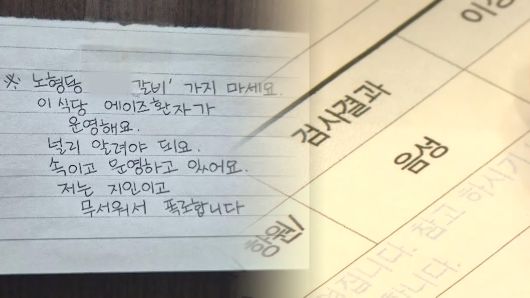 ※ 노형동 갈비' 가지 마세요.
이 식당 에이즈환자가
운영해요.
널리 알려야 되요.
속이고 운영하고 있어요.
저는 지인이고
무서워서 폭로합니다
이상
검사결과
음성
항원/
참고 하시기
니다.